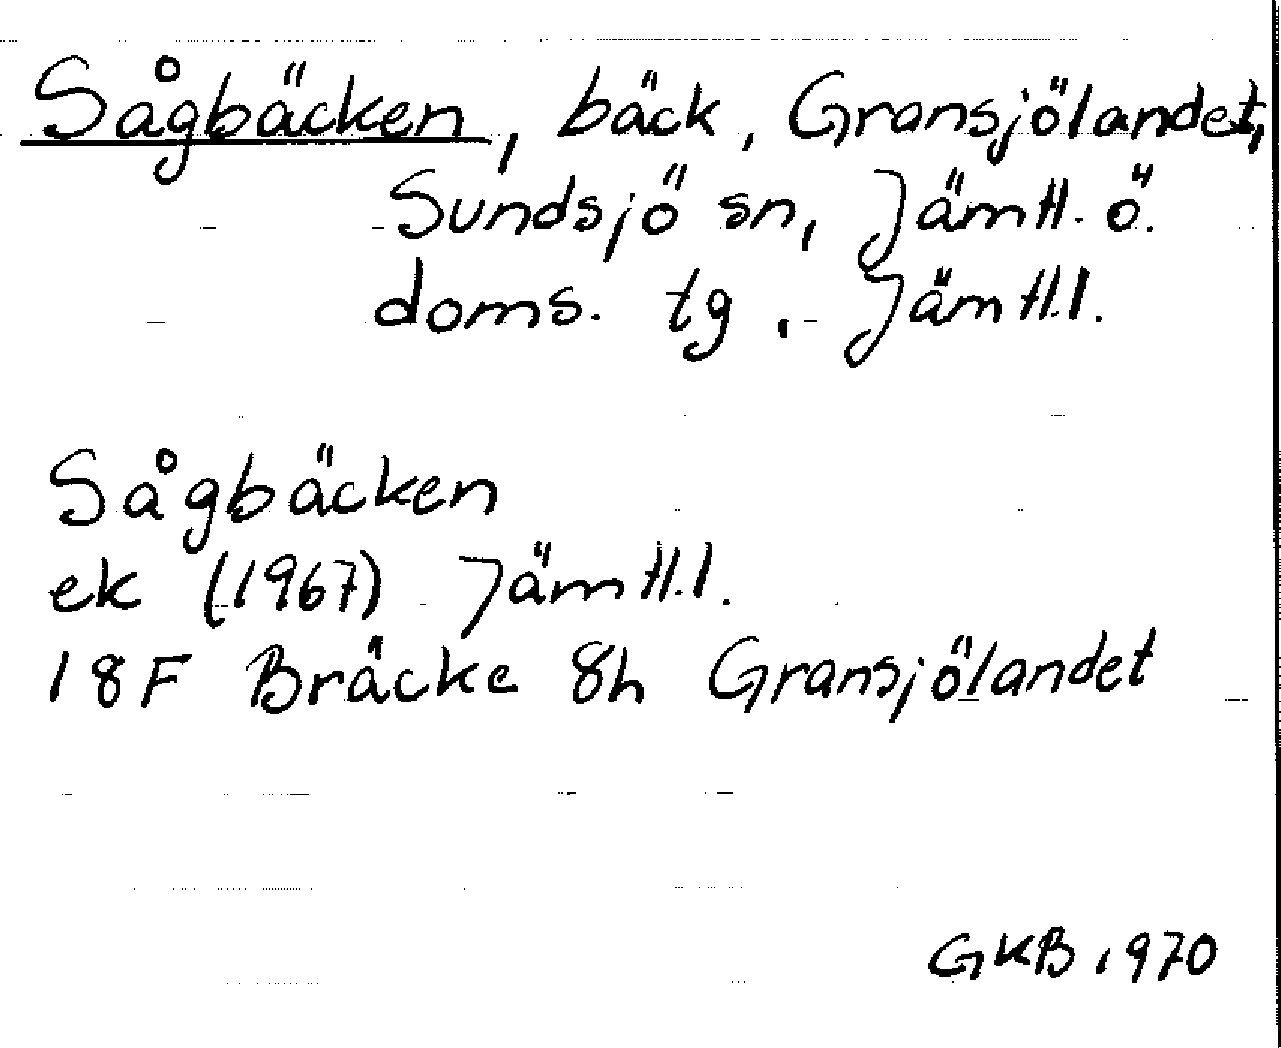 Sågbäcken, bäck, Gransjölandet,
Sundsjö sn, Jämtl. ö.
doms. tg. Jämtl.l.
Sågbäcken
ek (1967) Jämtl.l.
18F Bräcke 8h Gransjölandet
GKB 1970